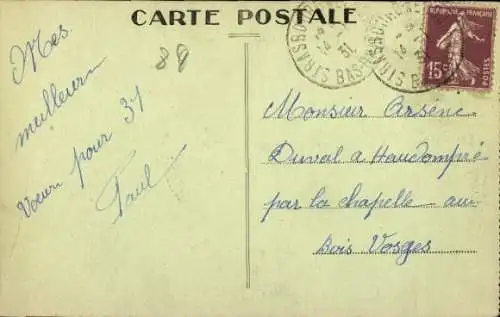 CARTE POSTALE
88
Mes
meilleurs
Vœux pour 31
Paul
STRASBOURG
BAS
31
STRASBOURG
BAS
REPUBLIQUE FRANÇAISE
15c
POSTES
Monsieur Arsène
Duval a Haudompré
par la chapelle - aux
Bois Vosges